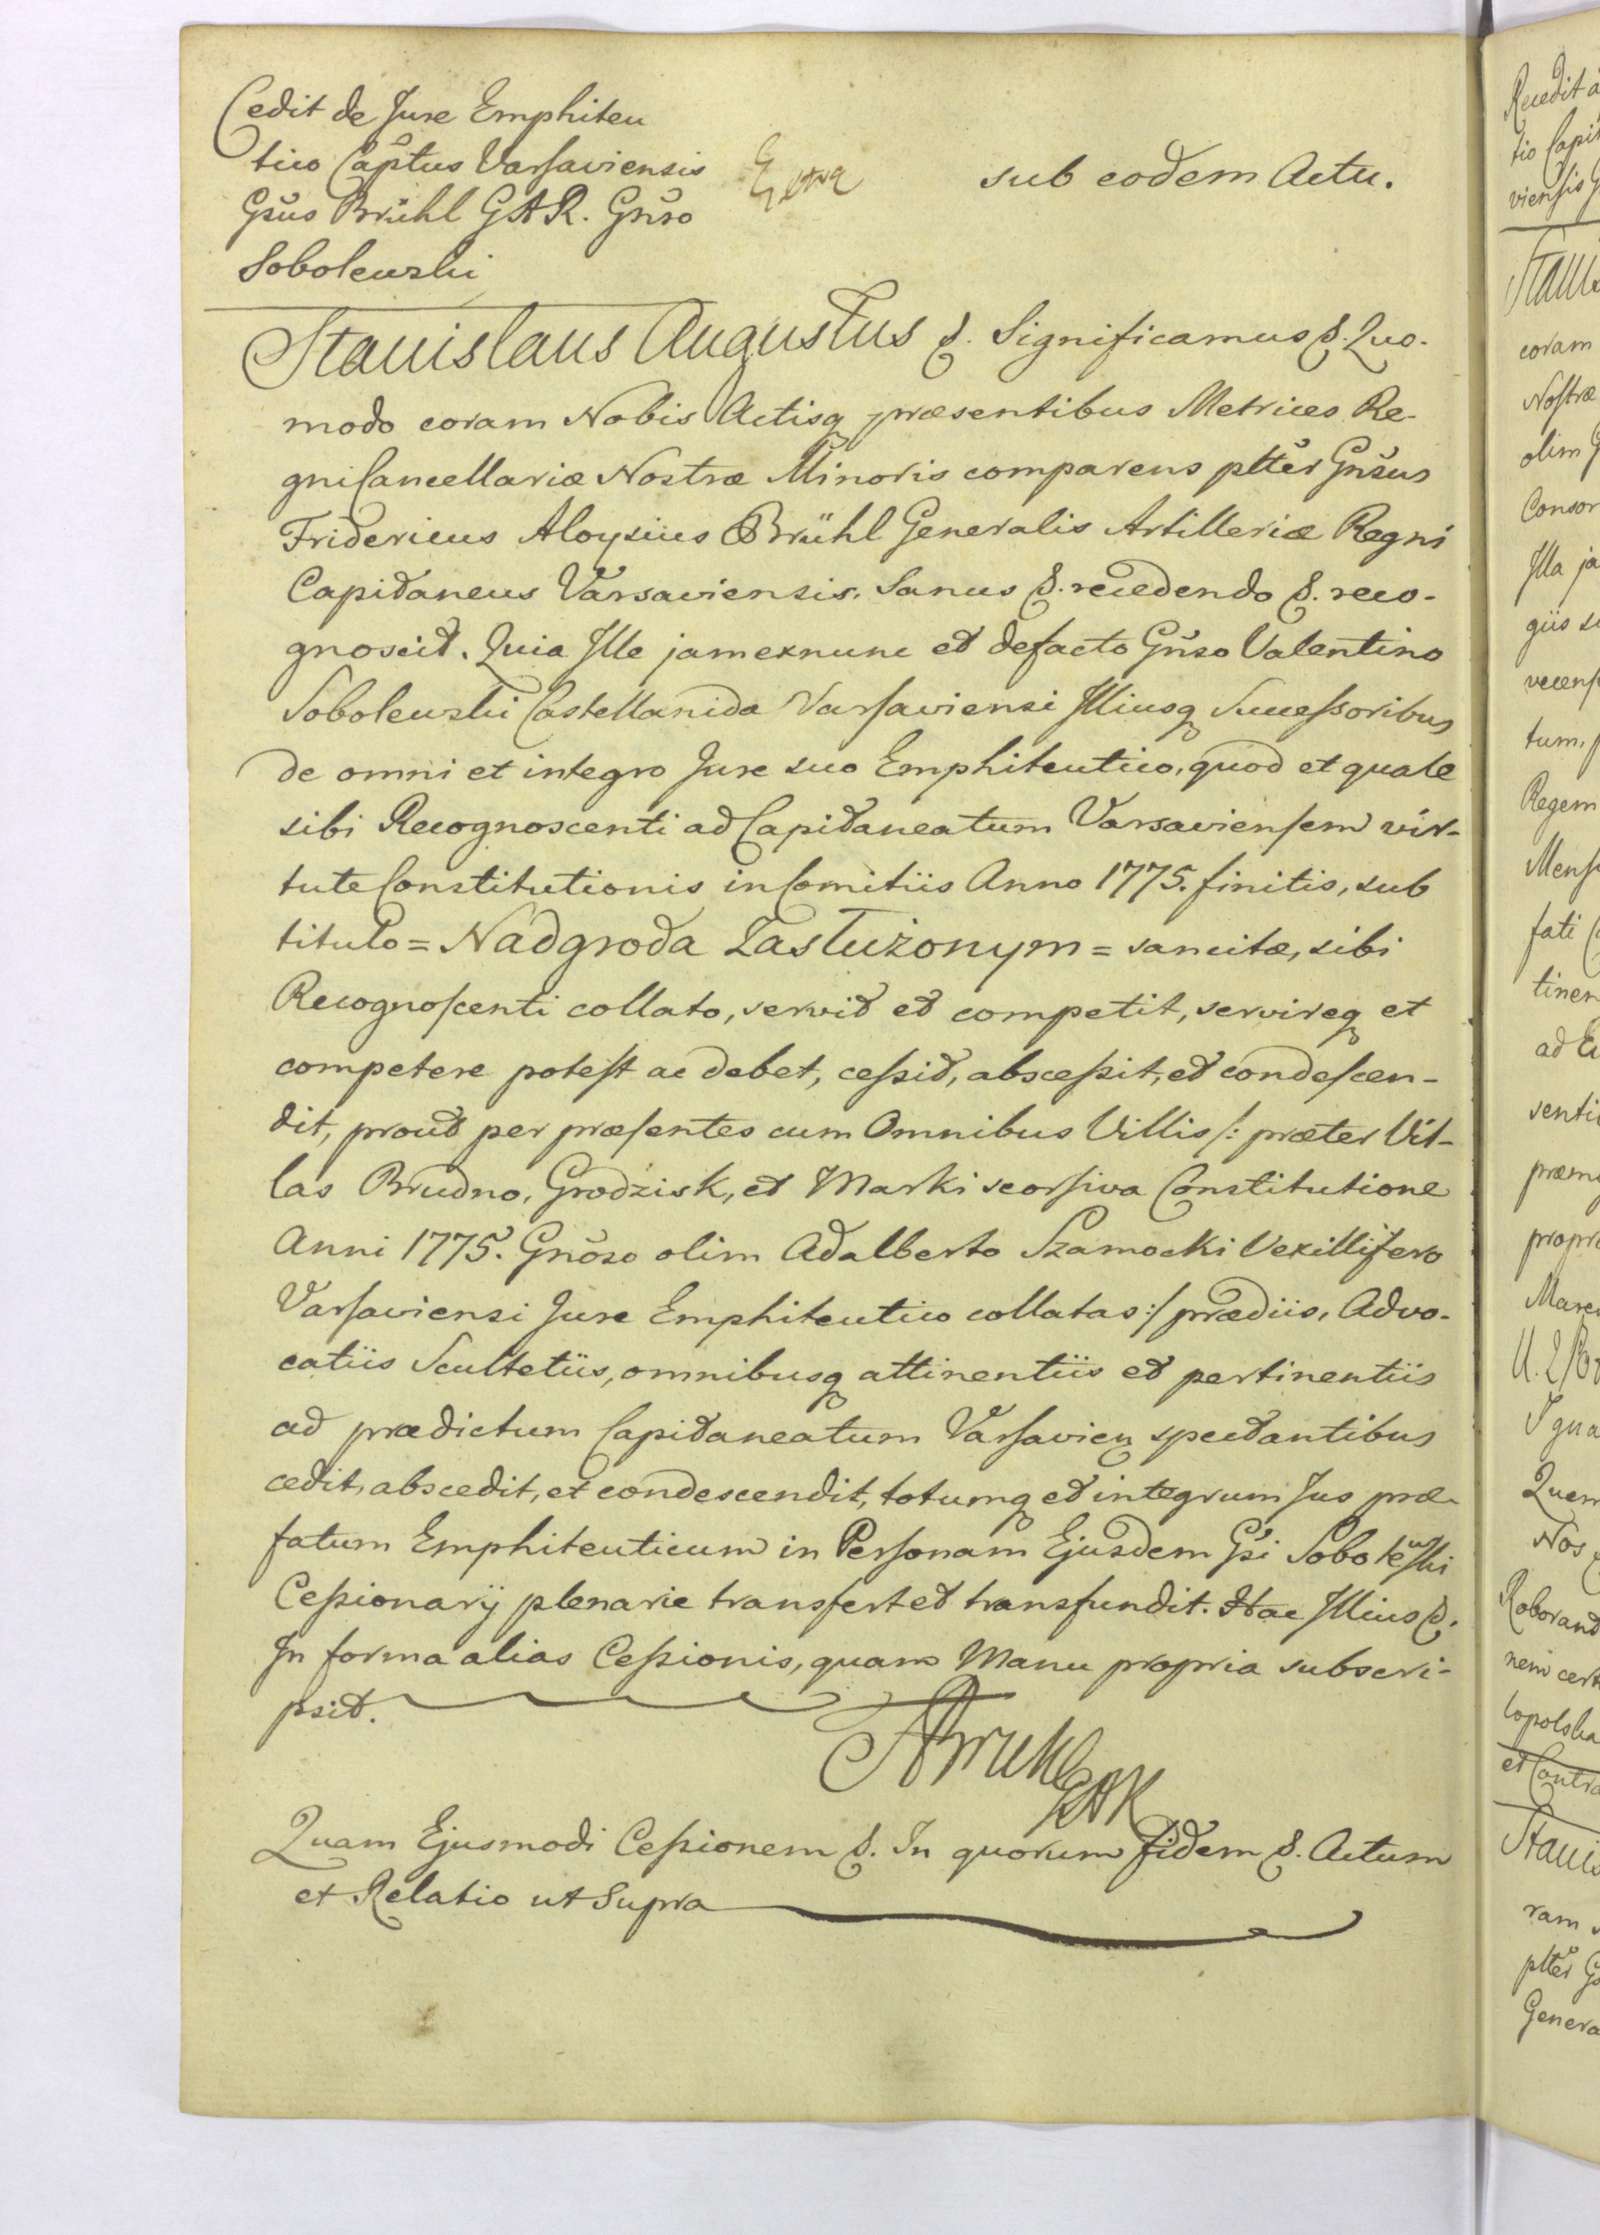 Cedit de Jure Emphiteu
tico Capttus Varsaviensis
Gsus Brühl GAR. Gnso
Sobolewski
sub eodem Actu.
Stanislaus Augustus &. Significamus &. Quo-
modo coram Nobis Actisq præsentibus Metrices Re-
gni Cancellariæ Nostræ Minoris comparens pltter Gnsus
Fridericus Aloysius Brühl Generalis Artilleriæ Regni
Capitaneus Varsaviensis. Sanus &. recedendo &. reco-
gnoscit. Quia Ille jam exnunc et defacto Gnso Valentino
Sobolewski Castellanida Varsaviensi Illiusq Successoribus
de omni et integro Jure suo Emphiteutico, quod et quale
sibi Recognoscenti ad Capitaneatum Varsaviensem vir-
tute Constitutionis in Comitiis Anno 1775. finitis, sub
titulo = Nadgroda Zasłużonym = sancitæ, sibi
Recognoscenti collato, servit et competit, servireq et
competere potest ac debet, cessit, abscessit, et condescen-
dit, prout per præsentes cum Omnibus Villis /: præter Vil-
las Brudno, Grodzisk, et Marki seorsiva Constitutione
Anni 1775. Gnoso olim Adalberto Szamocki Vexillifero
Varsaviensi Jure Emphiteutico collatas :/ prædiis, Advo-
catiis Scultetiis, omnibusq attinentiis et pertinentiis
ad prædictum Capitaneatum Varsavien spectantibus
cedit, abscedit, et condescendit, totumq et integrum Jus præ-
fatum Emphiteuticum in Personam Ejusdem Gsi Sobolewski
Cessionarij plenarie transfert et transfundit. Hac Illius &.
In forma alias Cessionis, quam Manu propria subscri-
psit.
ABruhl
GAK
Quam Ejusmodi Cessionem &. In quorum fidem &. Actum
et Relatio ut Supra
Recedit a
tio Capi
viensis G
Stanis
coram
Nostræ
olim G
Consor
Illa ja
giis su
recens
tum, p
Regem
Mens
fati C
tinen
ad E
senti
præm
propr
Marc
Igna
Quem
Nos
Roborand
nem cert
lopolska
et Contra
Stanis
ram
pltter Gs
Genera